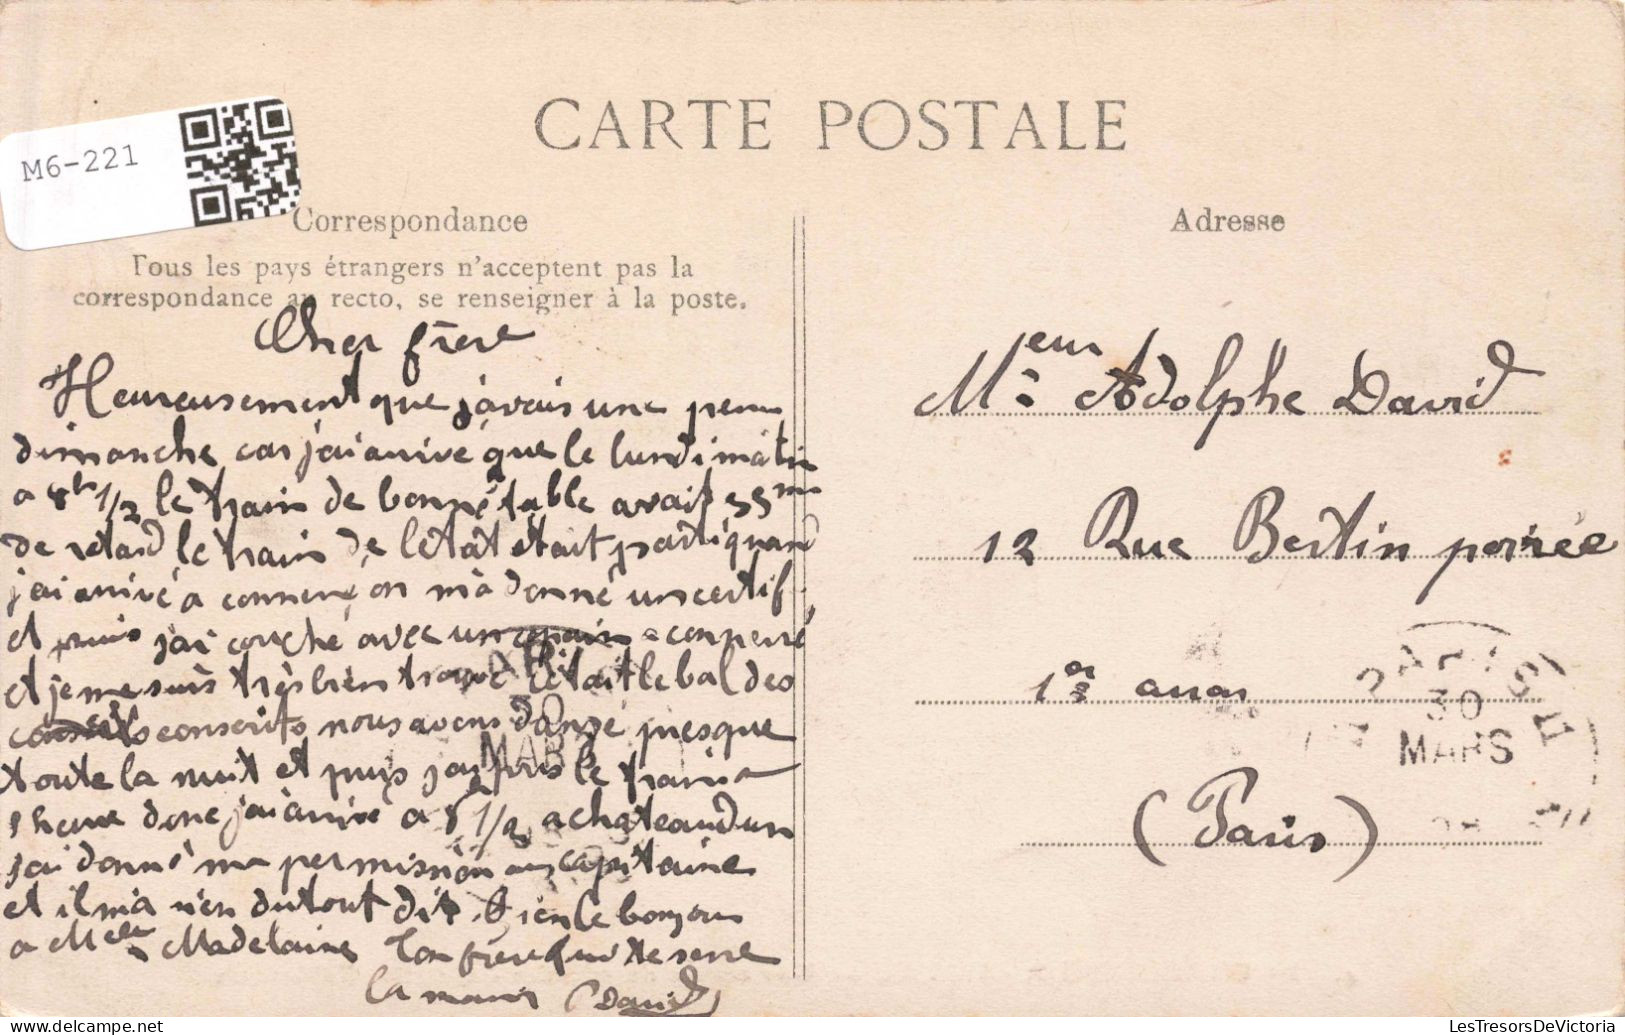 M6-221
CARTE POSTALE
Correspondance
Tous les pays étrangers n'acceptent pas la
correspondance au recto, se renseigner à la poste.
Cher frère
Heureusement que j'avais une perm
dimanche car j'ai arrivé que le lundi matin
a 8h 1/2 le train de bonnétable avait 55 mn
de retard le train de létat était parti quand
j'ai arrivé a connerré on m'a donné un certif.
et puis j'ai couché avec un copain a connerré
et je me suis très bien trouvé c'était le bal des
conscrits nous avons dansé presque
toute la nuit et puis j'ai pris le train a
heure donc j'ai arrivé a 8 1/2 a chateaudun
j'ai donné ma permission au capitaine
et il m'a rien du tout dit. Bien le bonjour
a Melle Madelaine Ton frère qui te serre
la main (David)
Adresse
Mr Adolphe David
12 Rue Bertin poirée
1er arron
(Paris)
30
MARS
MARS
LesTresorsDeVictoria sur www.delcampe.net